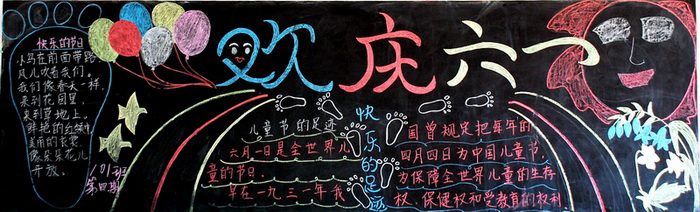 欢庆六一
快乐的节日
小鸟在前面带路
风儿吹着我们。
我们像春天一样,
来到花园里,
来到草地上。
鲜艳的红领巾
美丽的衣裳,
像朵朵花儿
开放。
八.01班
第四期
儿童节的足迹
六月一日是全世界儿
童的节日。
早在一九三一年我
快乐的足迹
国曾规定把每年的
四月四日为中国儿童节,
为保障全世界儿童的生存
权、保健权和受教育的权利